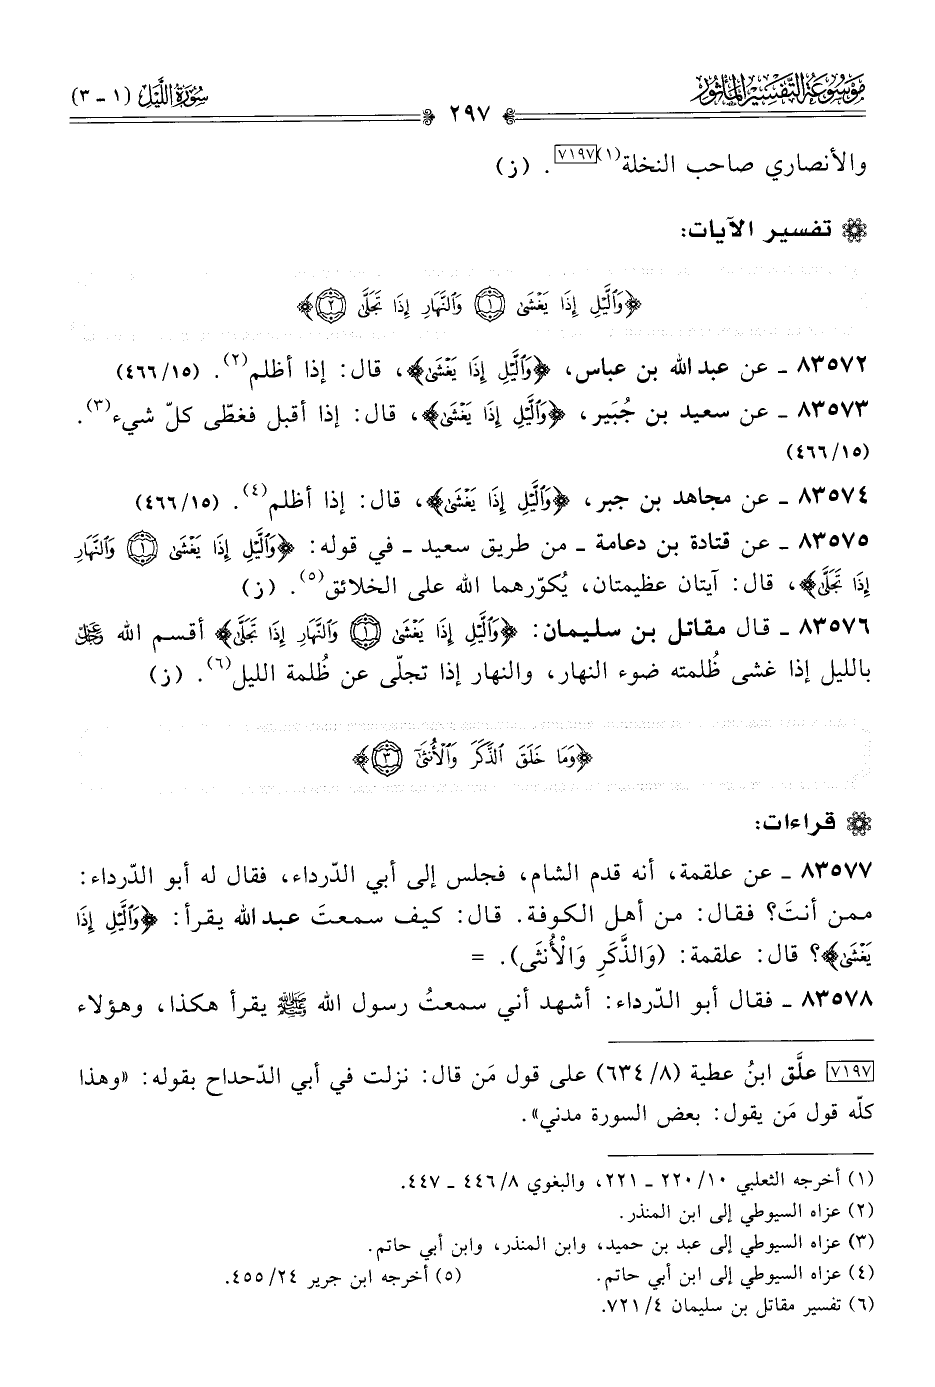 موسوعة التفسير المأثور
سورة الليل (١ - ٣)
٢٩٧
والأنصاري صاحب النخلة(١)[٧١٩٧]. (ز)
تفسير الآيات:
﴿وَٱلَّيۡلِ إِذَا يَغۡشَىٰ ١ وَٱلنَّهَارِ إِذَا تَجَلَّىٰ ٢﴾
٨٣٥٧٢ ـ عن عبد الله بن عباس، ﴿وَٱلَّيۡلِ إِذَا يَغۡشَىٰ﴾، قال: إذا أظلم(٢). (٤٦٦/١٥)
٨٣٥٧٣ ـ عن سعيد بن جُبَير، ﴿وَٱلَّيۡلِ إِذَا يَغۡشَىٰ﴾، قال: إذا أقبل فغطّى كلّ شيء(٣).
(٤٦٦/١٥)
٨٣٥٧٤ ـ عن مجاهد بن جبر، ﴿وَٱلَّيۡلِ إِذَا يَغۡشَىٰ﴾، قال: إذا أظلم(٤). (٤٦٦/١٥)
٨٣٥٧٥ ـ عن قتادة بن دعامة ـ من طريق سعيد ـ في قوله: ﴿وَٱلَّيۡلِ إِذَا يَغۡشَىٰ ١ وَٱلنَّهَارِ
إِذَا تَجَلَّىٰ﴾، قال: آيتان عظيمتان، يُكوّرهما الله على الخلائق(٥). (ز)
٨٣٥٧٦ ـ قال مقاتل بن سليمان: ﴿وَٱلَّيۡلِ إِذَا يَغۡشَىٰ ١ وَٱلنَّهَارِ إِذَا تَجَلَّىٰ﴾ أقسم الله ﷿
بالليل إذا غشى ظُلمته ضوء النهار، والنهار إذا تجلّى عن ظُلمة الليل(٦). (ز)
﴿وَمَا خَلَقَ ٱلذَّكَرَ وَٱلۡأُنثَىٰٓ ٣﴾
قراءات:
٨٣٥٧٧ ـ عن علقمة، أنه قدم الشام، فجلس إلى أبي الدّرداء، فقال له أبو الدّرداء:
ممن أنتَ؟ فقال: من أهل الكوفة. قال: كيف سمعتَ عبد الله يقرأ: ﴿وَٱلَّيۡلِ إِذَا
يَغۡشَىٰ﴾؟ قال: علقمة: (وَالذَّكَرِ وَالْأُنثَى). =
٨٣٥٧٨ ـ فقال أبو الدّرداء: أشهد أني سمعتُ رسول الله ﷺ يقرأ هكذا، وهؤلاء
[٧١٩٧] علَّق ابنُ عطية (٨/ ٦٣٤) على قول مَن قال: نزلت في أبي الدّحداح بقوله: «وهذا
كلّه قول مَن يقول: بعض السورة مدني».
(١) أخرجه الثعلبي ١٠/ ٢٢٠ ـ ٢٢١، والبغوي ٨/ ٤٤٦ ـ ٤٤٧.
(٢) عزاه السيوطي إلى ابن المنذر.
(٣) عزاه السيوطي إلى عبد بن حميد، وابن المنذر، وابن أبي حاتم.
(٤) عزاه السيوطي إلى ابن أبي حاتم. (٥) أخرجه ابن جرير ٢٤/ ٤٥٥.
(٦) تفسير مقاتل بن سليمان ٤/ ٧٢١.